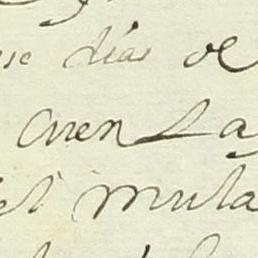 se dias de
Cuenta
el mula